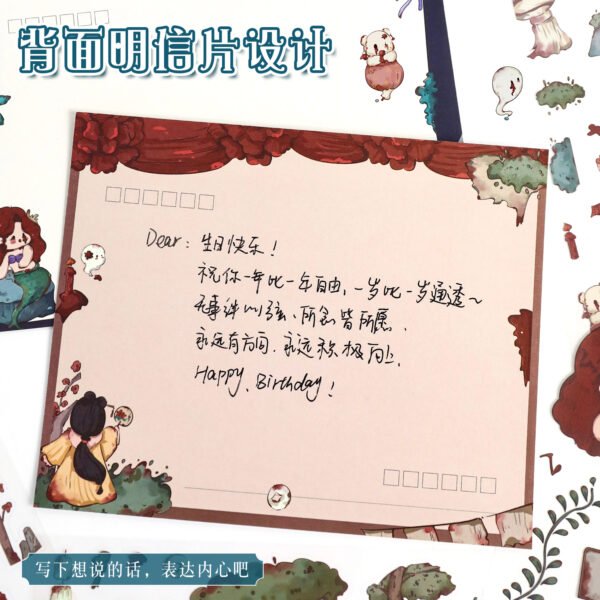 背面明信片设计
Dear: 生日快乐！
祝你一年比一年自由、一岁比一岁通透～
无事绊心弦、所念皆所愿、
永远有方向、永远积极向上.
Happy. Birthday!
写下想说的话，表达内心吧